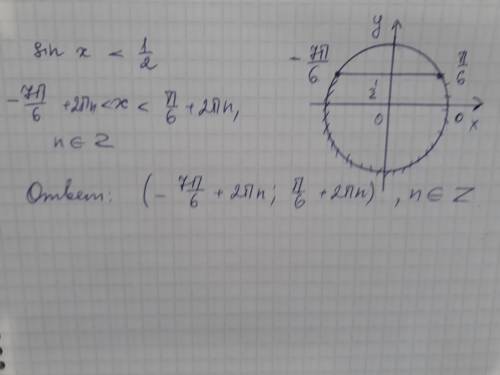 sin x < 1/2
-7π/6 + 2πn < x < π/6 + 2πn,
n ∈ Z
y
-7π/6
π/6
1/2
0
0
x
Ответ: (-7π/6 + 2πn; π/6 + 2πn), n ∈ Z